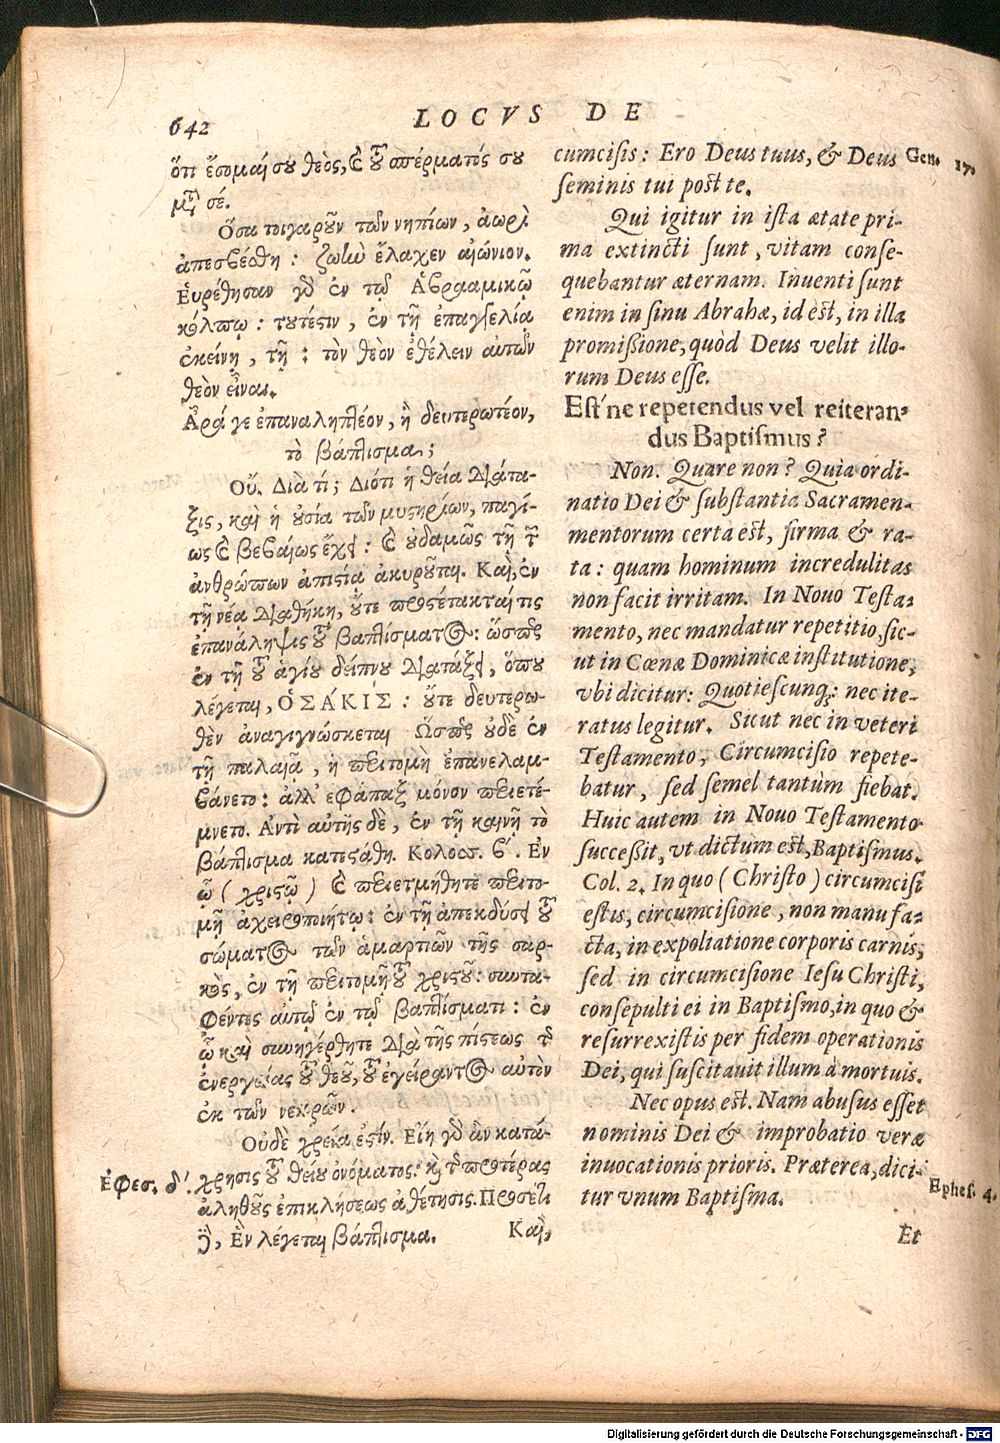 642
LOCVS DE
ὅτι ἔσομαί σου θεὸς, καὶ τοῦ σπέρματός σου
μετὰ σέ.
Ὅσα τοιγαροῦν τῶν νηπίων, ἀωρὶ
ἀπεσβέσθη: ζωὴν ἔλαχεν αἰώνιον.
Εὑρέθησαν γὰρ ἐν τῷ Ἀβρααμικῷ
κόλπῳ: τουτέστιν, ἐν τῇ ἐπαγγελίᾳ
ἐκείνῃ, τῇ: τὸν θεὸν ἐθέλειν αὐτῶν
θεὸν εἶναι.
Ἆρά γε ἐπαναληπτέον, ἢ δευτερωτέον,
τὸ βάπτισμα;
Οὔ. Διὰ τί; Διότι ἡ θεία διάτα-
ξις, καὶ ἡ οὐσία τῶν μυστηρίων, παγί-
ως καὶ βεβαίως ἔχει: καὶ οὐδαμῶς τῇ τῶν
ἀνθρώπων ἀπιστίᾳ ἀκυροῦται. Καὶ, ἐν
τῇ νέᾳ διαθήκῃ, οὔτε προστέτακταί τις
ἐπανάληψις τοῦ βαπτίσματος: ὥσπερ
ἐν τῇ τοῦ ἁγίου δείπνου διατάξει, ὅπου
λέγεται, ὉΣΆΚΙΣ: οὔτε δευτερω-
θὲν ἀναγιγνώσκεται Ὥσπερ οὐδὲ ἐν
τῇ παλαιᾷ, ἡ περιτομὴ ἐπανελαμ-
βάνετο: ἀλλ' εφάπαξ μόνον περιετέ-
μνετο. Ἀντὶ αὐτῆς δὲ, ἐν τῇ καινῇ τὸ
βάπτισμα κατεστάθη. Κολοσσ. β΄. Ἐν
ᾧ (χριστῷ) καὶ περιετμήθητε περιτο-
μῇ ἀχειροποιήτῳ: ἐν τῇ ἀπεκδύσει τοῦ
σώματος τῶν ἁμαρτιῶν τῆς σαρ-
κὸς, ἐν τῇ περιτομῇ τοῦ χριστοῦ: συντα-
φέντες αὐτῷ ἐν τῷ βαπτίσματι: ἐν
ᾧ καὶ συνηγέρθητε διὰ τῆς πίστεως τῆς
ἐνεργείας τοῦ θεοῦ, τοῦ ἐγείραντος αὐτὸν
ἐκ τῶν νεκρῶν.
Οὐδὲ χρεία ἐστίν. Εἴη γὰρ ἂν κατά-
χρησις τοῦ θείου ὀνόματος: καὶ τῆς προτέρας
ἀληθοῦς ἐπικλήσεως ἀθέτησις. Προσέτι
Ἓν λέγεται βάπτισμα.
Ἐφεσ. δ΄.
Καὶ,
cumcisis: Ero Deus tuus, & Deus
seminis tui post te.
Gen. 17.
Qui igitur in ista ætate pri-
ma extincti sunt, vitam conse-
quebantur æternam. Inuenti sunt
enim in sinu Abrahæ, id est, in illa
promißione, quòd Deus velit illo-
rum Deus esse.
Est'ne repetendus vel reiteran-
dus Baptismus?
Non. Quare non? Quia ordi-
natio Dei & substantia Sacramen-
mentorum certa est, firma & ra-
ta: quam hominum incredulitas
non facit irritam. In Nouo Testa-
mento, nec mandatur repetitio, sic-
ut in Cœnæ Dominicæ institutione,
vbi dicitur: Quotiescunq;: nec ite-
ratus legitur. Sicut nec in veteri
Testamento, Circumcisio repete-
batur, sed semel tantùm fiebat.
Huic autem in Nouo Testamento
succeßit, vt dictum est, Baptismus.
Col. 2. In quo (Christo) circumcisi
estis, circumcisione, non manu fa-
cta, in expoliatione corporis carnis,
sed in circumcisione Iesu Christi,
consepulti ei in Baptismo, in quo &
resurrexistis per fidem operationis
Dei, qui suscitauit illum à mortuis.
Nec opus est. Nam abusus esset
nominis Dei & improbatio veræ
inuocationis prioris. Præterea, dici-
tur vnum Baptisma.
Ephes. 4.
Et
Digitalisierung gefördert durch die Deutsche Forschungsgemeinschaft - DFG